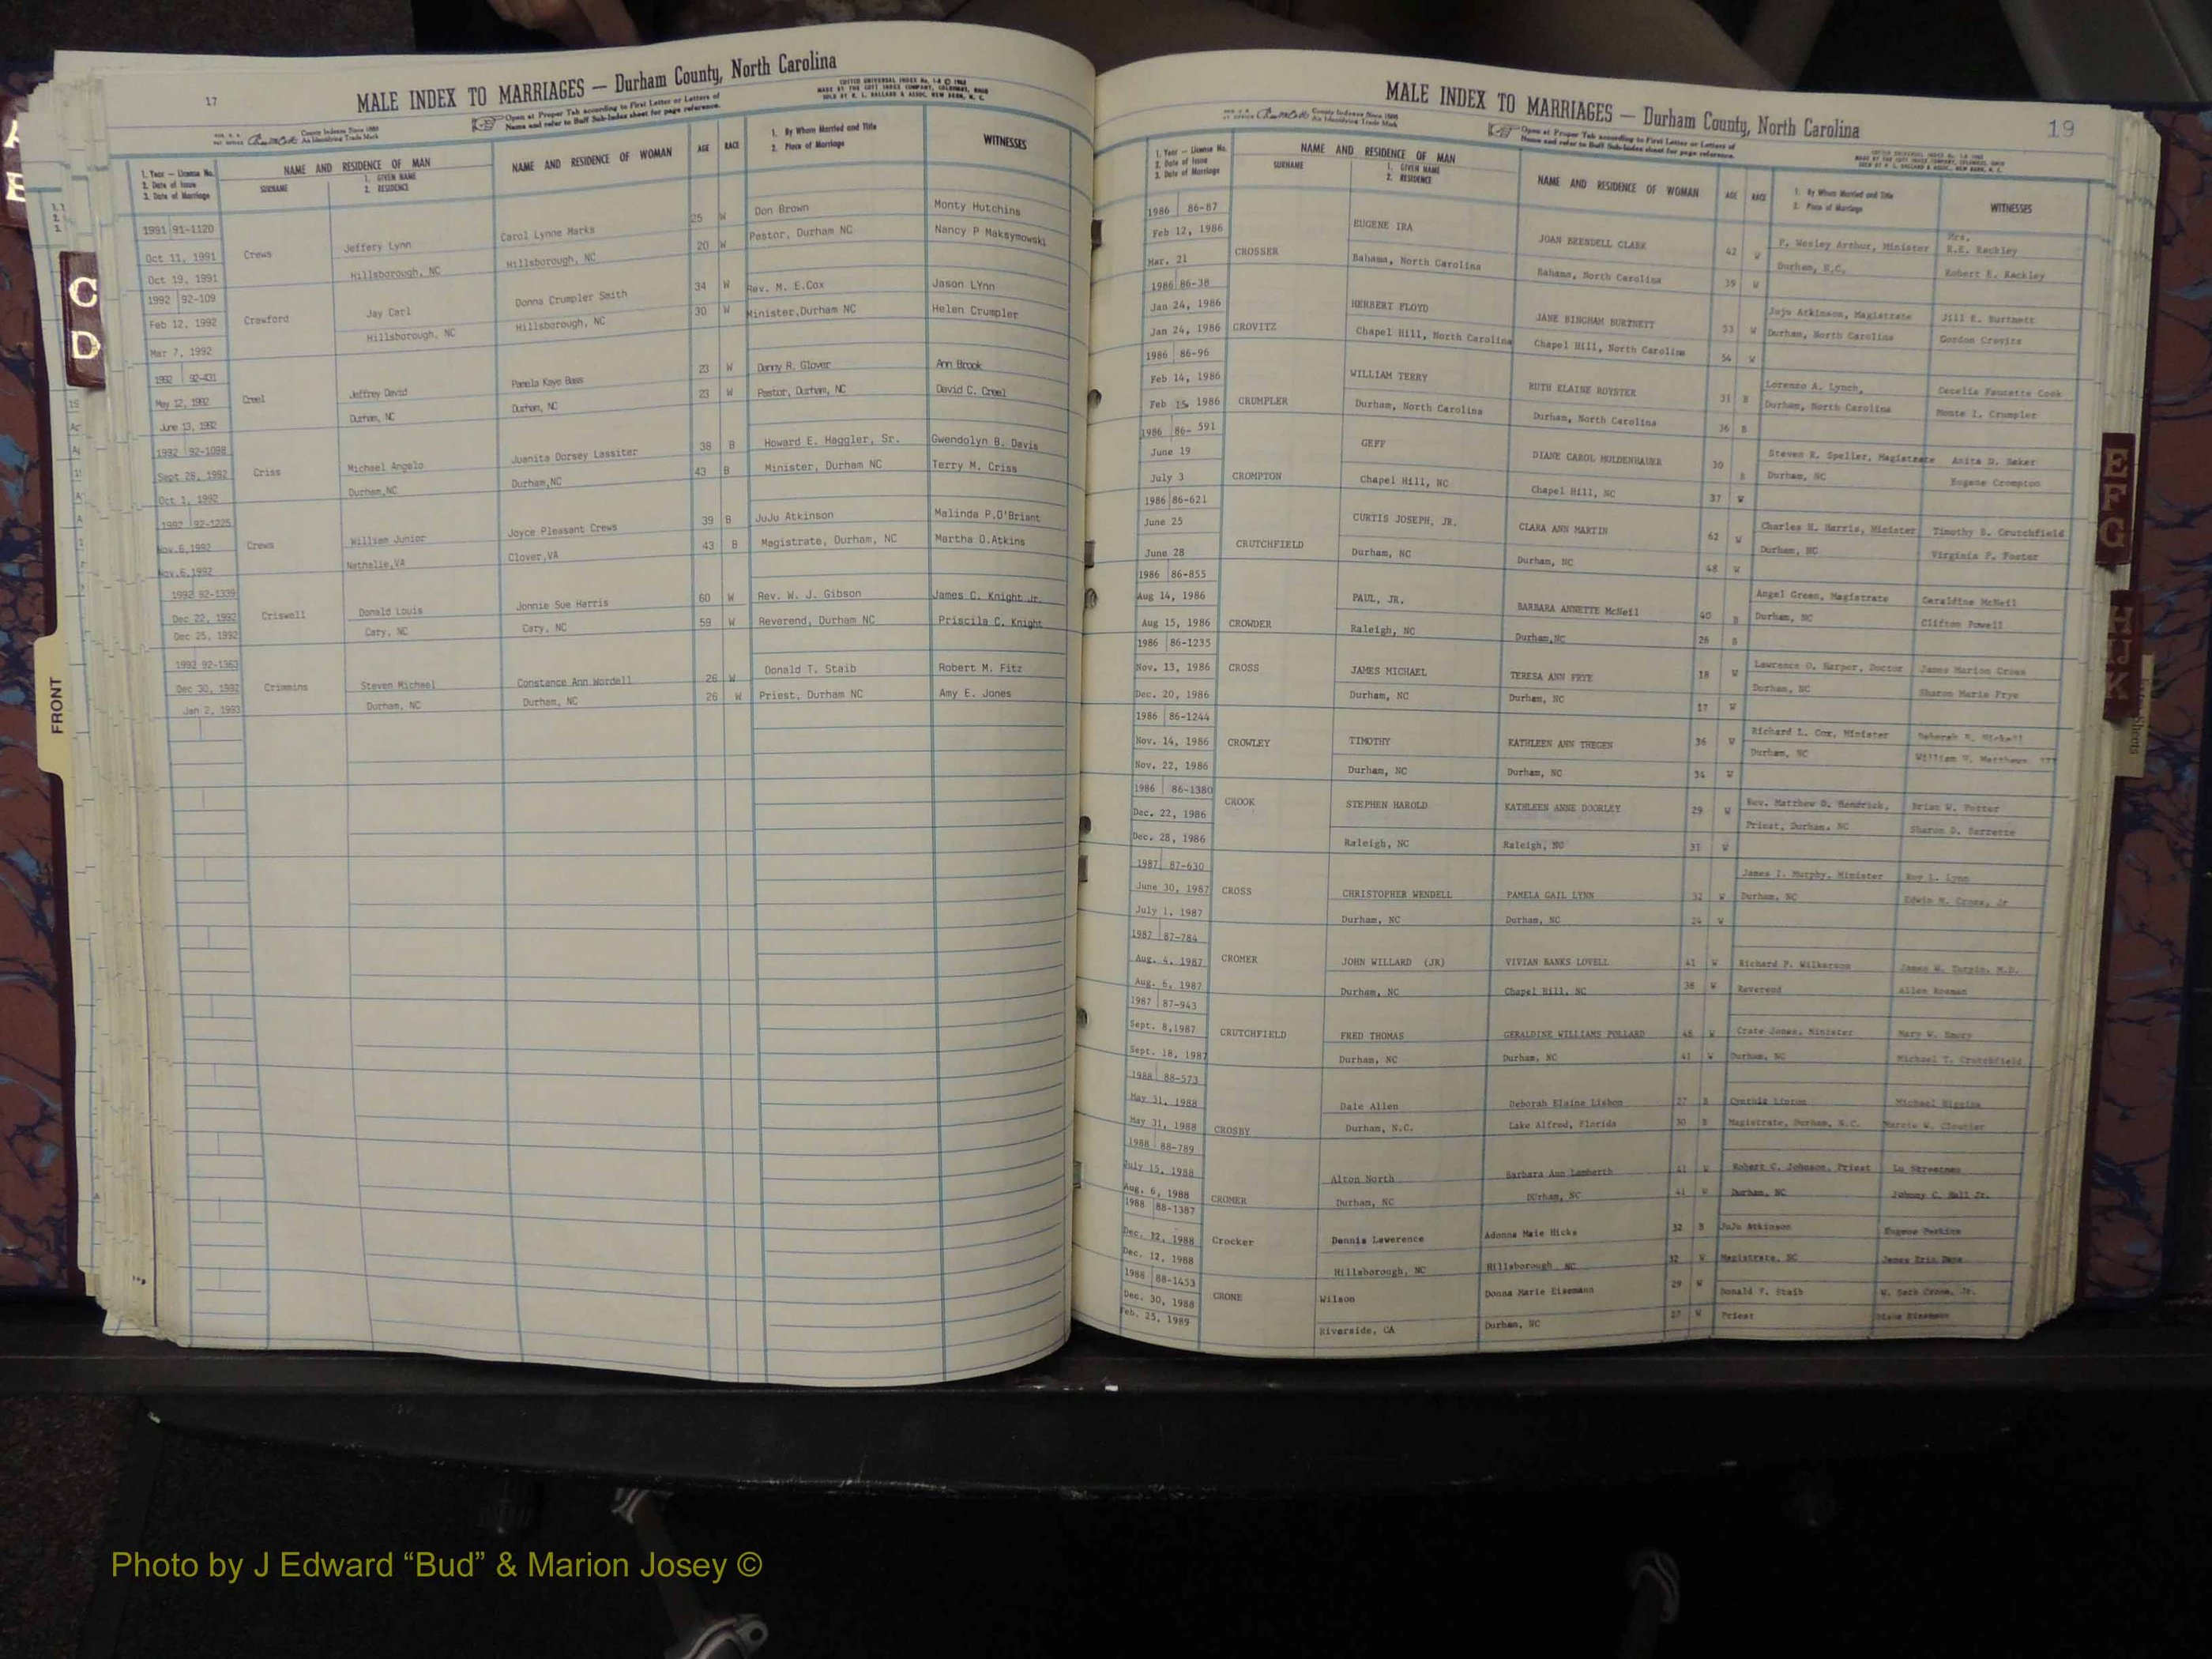 17
MALE INDEX TO MARRIAGES — Durham County, North Carolina
Open at Proper Tab according to First Letter or Letters of
Name and refer to Buff Sub-Index sheet for page reference.
1. Year — License No.
2. Date of Issue
3. Date of Marriage
NAME AND RESIDENCE OF MAN
SURNAME
1. GIVEN NAME
2. RESIDENCE
NAME AND RESIDENCE OF WOMAN
AGE
RACE
1. By Whom Married and Title
2. Place of Marriage
WITNESSES
1991 91-1120
Oct 11, 1991
Oct 19, 1991
Crews
Jeffery Lynn
Hillsborough, NC
Carol Lynne Marks
Hillsborough, NC
25 W
20 W
Don Brown
Pastor, Durham NC
Monty Hutchins
Nancy P Maksymowski
1992 92-109
Feb 12, 1992
Mar 7, 1992
Crawford
Jay Carl
Hillsborough, NC
Donna Crumpler Smith
Hillsborough, NC
34 W
30 W
Rev. M. E.Cox
Minister,Durham NC
Jason LYnn
Helen Crumpler
1992 92-431
May 12, 1992
June 13, 1992
Creel
Jeffrey David
Durham, NC
Pamela Kaye Bass
Durham, NC
23 W
23 W
Danny R. Glover
Pastor, Durham, NC
Ann Brook
David C. Creel
1992 92-1098
Sept 28, 1992
Oct 1, 1992
Criss
Michael Angelo
Durham,NC
Juanita Dorsey Lassiter
Durham,NC
38 B
43 B
Howard E. Haggler, Sr.
Minister, Durham NC
Gwendolyn B. Davis
Terry M. Criss
1992 92-1225
Nov.6,1992
Nov.6,1992
Crews
William Junior
Nathalie,VA
Joyce Pleasant Crews
Clover,VA
39 B
43 B
JuJu Atkinson
Magistrate, Durham, NC
Malinda P.O'Briant
Martha O.Atkins
1992 92-1339
Dec 22, 1992
Dec 25, 1992
Criswell
Donald Louis
Cary, NC
Jonnie Sue Harris
Cary, NC
60 W
59 W
Rev. W. J. Gibson
Reverend, Durham NC
James C. Knight Jr.
Priscila C. Knight
1992 92-1363
Dec 30, 1992
Jan 2, 1993
Crimmins
Steven Michael
Durham, NC
Constance Ann Wordell
Durham, NC
26 W
26 W
Donald T. Staib
Priest, Durham NC
Robert M. Fitz
Amy E. Jones
MALE INDEX TO MARRIAGES — Durham County, North Carolina
19
Open at Proper Tab according to First Letter or Letters of
Name and refer to Buff Sub-Index sheet for page reference.
1. Year — License No.
2. Date of Issue
3. Date of Marriage
NAME AND RESIDENCE OF MAN
SURNAME
1. GIVEN NAME
2. RESIDENCE
NAME AND RESIDENCE OF WOMAN
AGE
RACE
1. By Whom Married and Title
2. Place of Marriage
WITNESSES
1986 86-87
Feb 12, 1986
Mar. 21
CROSSER
EUGENE IRA
Bahama, North Carolina
JOAN BRENDELL CLARK
Bahama, North Carolina
42 W
39 W
F. Wesley Arthur, Minister
Durham, N.C.
Mrs.
R.E. Rackley
Robert E. Rackley
1986 86-38
Jan 24, 1986
Jan 24, 1986
CROVITZ
HERBERT FLOYD
Chapel Hill, North Carolina
JANE BINGHAM BURTNETT
Chapel Hill, North Carolina
53 W
54 W
Juju Atkinson, Magistrate
Durham, North Carolina
Jill E. Burtnett
Gordon Crovitz
1986 86-96
Feb 14, 1986
Feb 15, 1986
CRUMPLER
WILLIAM TERRY
Durham, North Carolina
RUTH ELAINE ROYSTER
Durham, North Carolina
31 B
36 B
Lorenzo A. Lynch,
Durham, North Carolina
Cecelia Faucette Cook
Monte I. Crumpler
1986 86- 591
June 19
July 3
CROMPTON
GEFF
Chapel Hill, NC
DIANE CAROL MOLDENHAUER
Chapel Hill, NC
30 B
37 W
Steven R. Speller, Magistrate
Durham, NC
Anita D. Baker
Eugene Crompton
1986 86-621
June 25
June 28
CRUTCHFIELD
CURTIS JOSEPH, JR.
Durham, NC
CLARA ANN MARTIN
Durham, NC
62 W
48 W
Charles H. Harris, Minister
Durham, NC
Timothy B. Crutchfield
Virginia P. Foster
1986 86-855
Aug 14, 1986
Aug 15, 1986
CROWDER
PAUL, JR.
Raleigh, NC
BARBARA ANNETTE McNeil
Durham,NC
40 B
26 B
Angel Green, Magistrate
Durham, NC
Geraldine McNeil
Clifton Powell
1986 86-1235
Nov. 13, 1986
Dec. 20, 1986
CROSS
JAMES MICHAEL
Durham, NC
TERESA ANN FRYE
Durham, NC
18 W
17 W
Lawrence O. Harper, Doctor
Durham, NC
James Marion Cross
Sharon Marie Frye
1986 86-1244
Nov. 14, 1986
Nov. 22, 1986
CROWLEY
TIMOTHY
Durham, NC
KATHLEEN ANN THEGEN
Durham, NC
36 W
34 W
Richard L. Cox, Minister
Durham, NC
William W. Matthews III
1986 86-1380
Dec. 22, 1986
Dec. 28, 1986
CROOK
STEPHEN HAROLD
Raleigh, NC
KATHLEEN ANNE DOORLEY
Raleigh, NC
29 W
31 W
Rev. Matthew D. Hendrick,
Priest, Durham, NC
Brian W. Potter
Sharon D. Barrette
1987 87-630
June 30, 1987
July 1, 1987
CROSS
CHRISTOPHER WENDELL
Durham, NC
PAMELA GAIL LYNN
Durham, NC
32 W
24 W
James I. Murphy, Minister
Durham, NC
Roy L. Lynn
Edwin M. Cross, Jr
1987 87-784
Aug. 4, 1987
Aug. 6, 1987
CROMER
JOHN WILLARD (JR)
Durham, NC
VIVIAN BANKS LOVELL
Chapel Hill, NC
41 W
38 W
Richard P. Wilkerson
Reverend
James W. Turpin, M.D.
Allen Rosman
1987 87-943
Sept. 8,1987
Sept. 18, 1987
CRUTCHFIELD
FRED THOMAS
Durham, NC
GERALDINE WILLIAMS POLLARD
Durham, NC
48 W
41 W
Crate Jones, Minister
Durham, NC
Mary W. Emory
Michael T. Crutchfield
1988 88-573
May 31, 1988
May 31, 1988
CROSBY
Dale Allen
Durham, N.C.
Deborah Elaine Lisbon
Lake Alfred, Florida
27 B
30 B
Cynthia Linton
Magistrate, Durham, N.C.
Michael Higgins
Marcie W. Cloutier
1988 88-789
July 15, 1988
Aug. 6, 1988
CROMER
Alton North
Durham, NC
Barbara Ann Lamberth
DUrham, NC
41 W
41 W
Robert C. Johnson, Priest
Durham, NC
Lu Streetman
Johnny C. Hall Jr.
1988 88-1387
Dec. 12, 1988
Dec. 12, 1988
Crocker
Dennis Lawerence
Hillsborough, NC
Adonna Maie Hicks
Hillsborough NC
32 B
32 W
JuJu Atkinson
Magistrate, NC
Eugene Perkins
1988 88-1453
Dec. 30, 1988
Feb. 25, 1989
CRONE
Wilson
Riverside, CA
Donna Marie Eisemann
Durham, NC
29 W
27 W
Donald F. Staib
Priest
W. Seth Crone, Jr.
Diane Eisemann
C
D
FRONT
E
F
G
H
IJ
K
Photo by J Edward “Bud” & Marion Josey ©